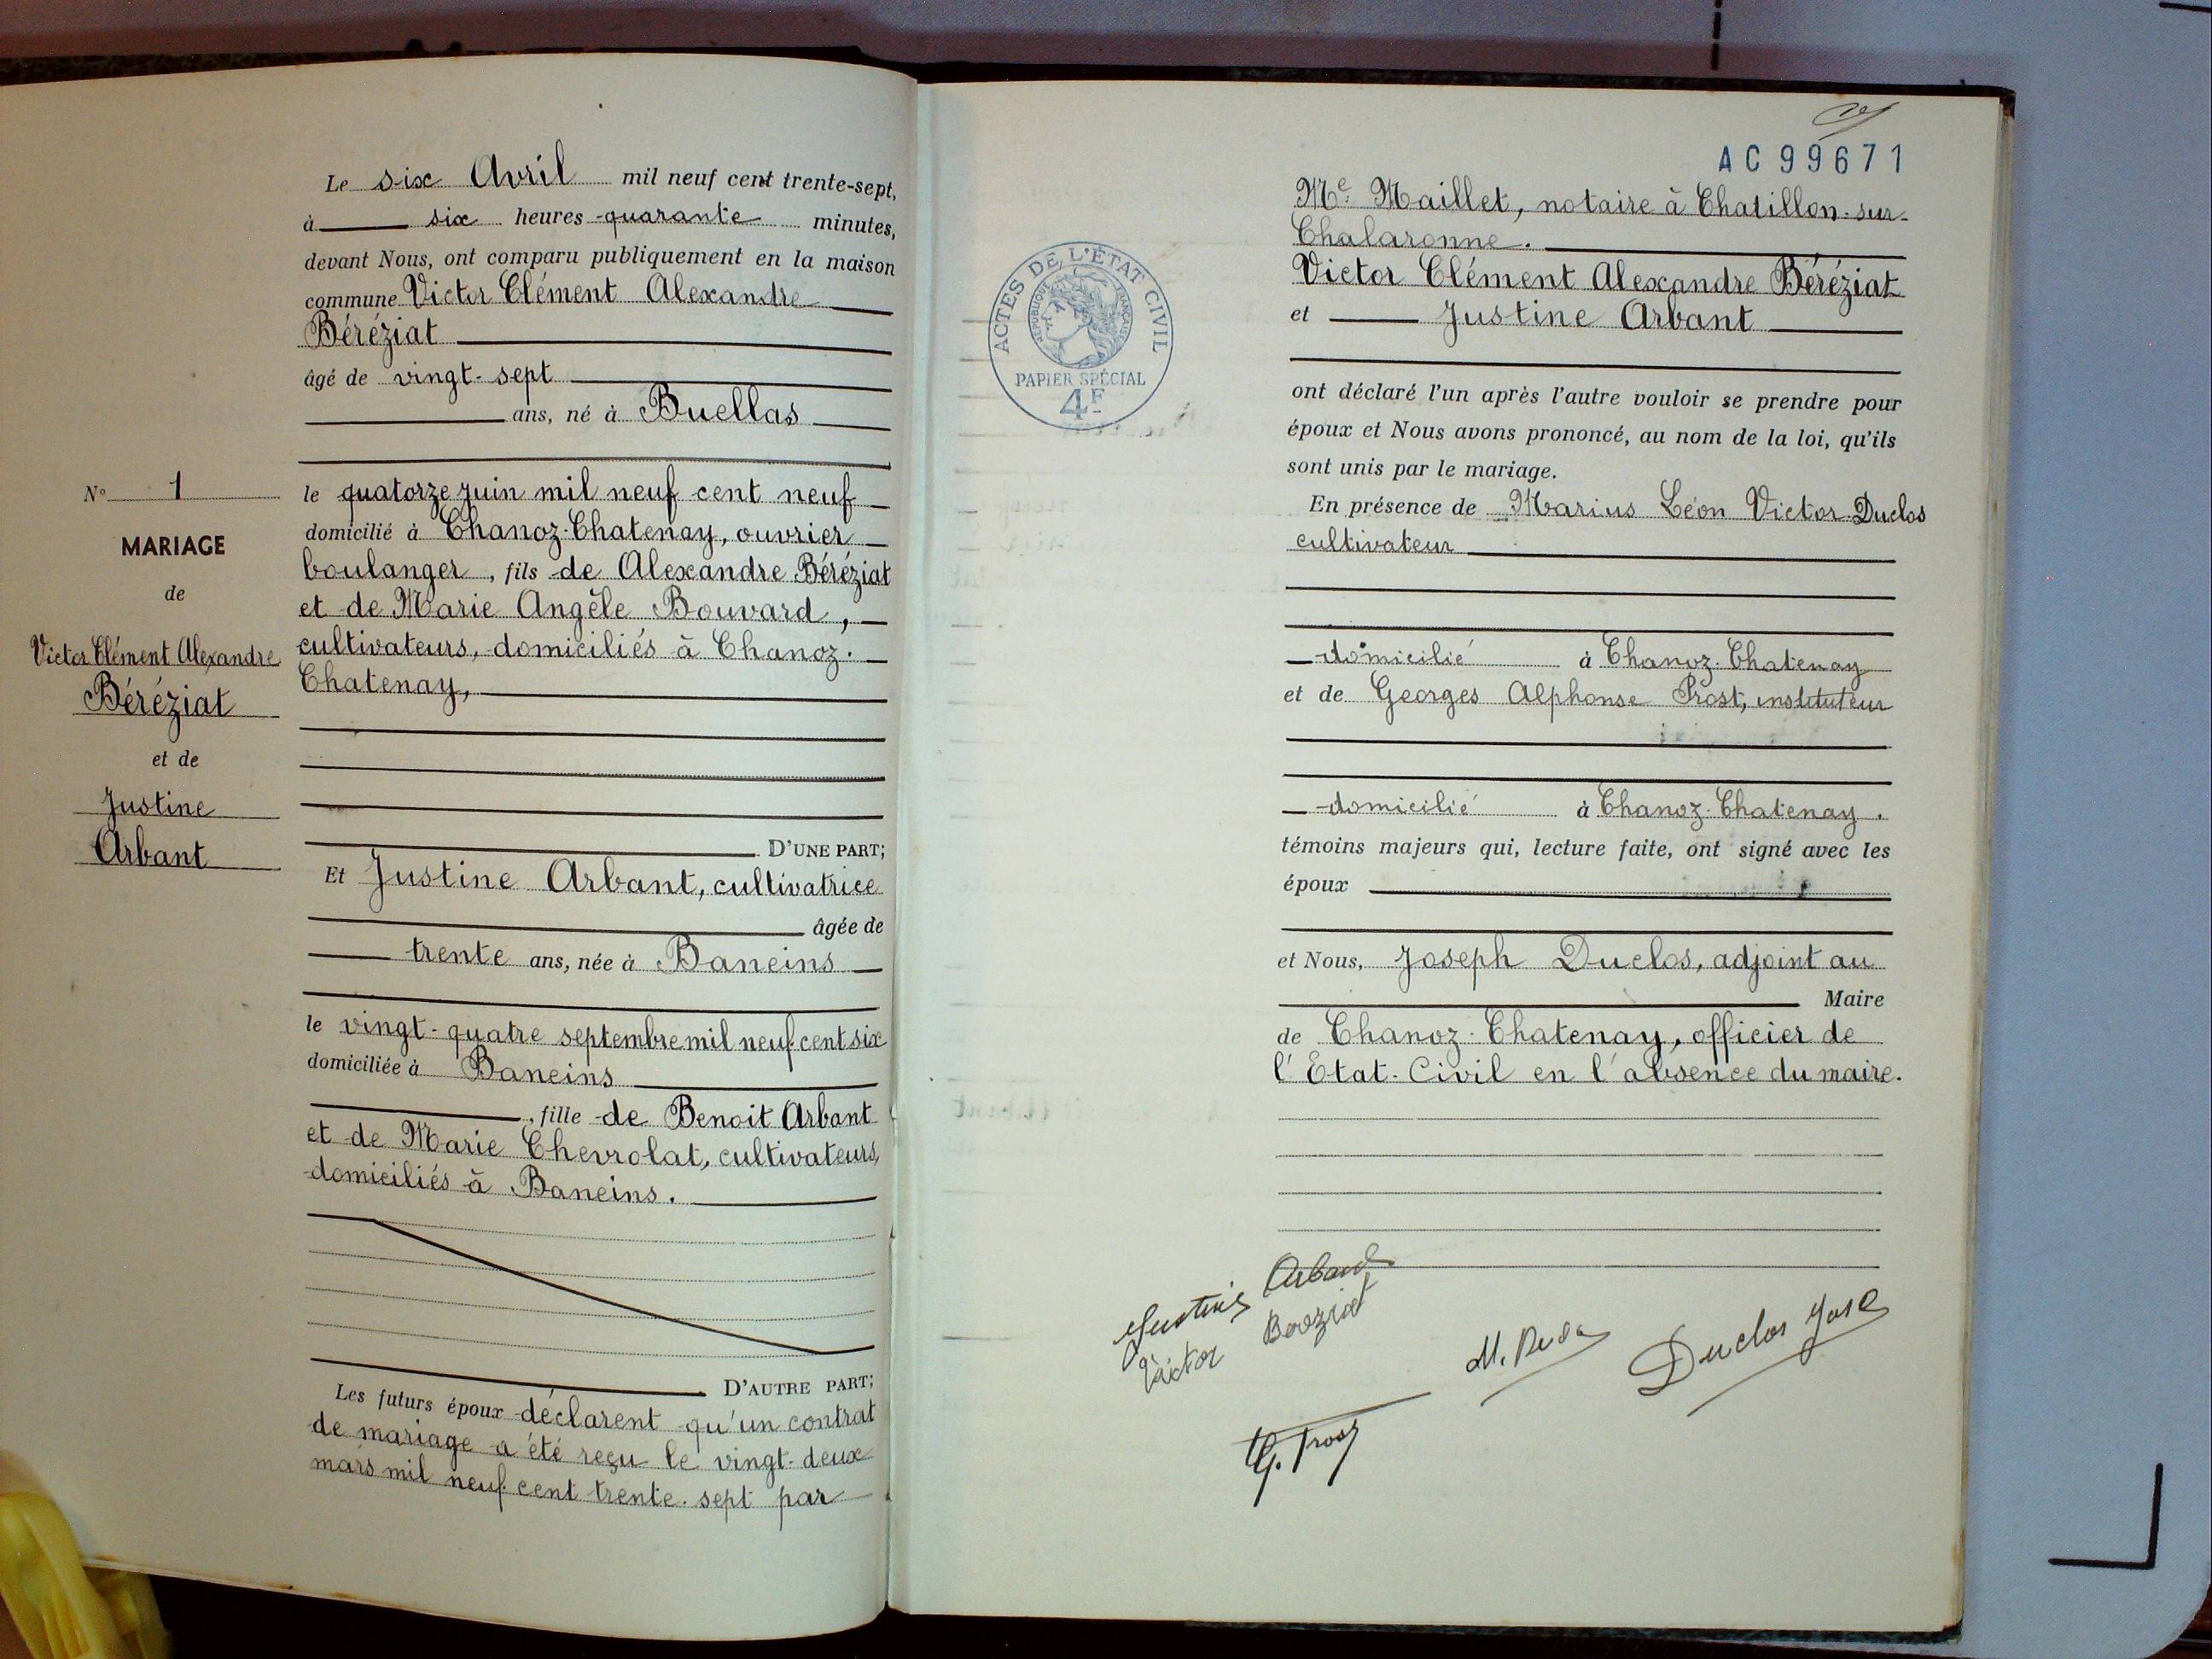 Le six Avril mil neuf cent trente-sept,
à six heures quarante minutes,
devant Nous, ont comparu publiquement en la maison
commune Victor Clément Alexandre
Béréziat
âgé de vingt-sept
ans, né à Buellas
le quatorze juin mil neuf cent neuf
domicilié à Chanoz-Chatenay, ouvrier
boulanger, fils de Alexandre Béréziat
et de Marie Angèle Bouvard,
cultivateurs, domiciliés à Chanoz-
Chatenay,
D'UNE PART;
Et Justine Arbant, cultivatrice
âgée de
trente ans, née à Baneins
le vingt-quatre septembre mil neuf cent six
domiciliée à Baneins
, fille de Benoit Arbant
et de Marie Chevrolat, cultivateurs,
domiciliés à Baneins.
D'AUTRE PART;
Les futurs époux déclarent qu'un contrat
de mariage a été reçu le vingt-deux
mars mil neuf cent trente-sept par
N° 1
MARIAGE
de
Victor Clément Alexandre
Béréziat
et de
Justine
Arbant
AC 99671
ACTES DE L'ÉTAT CIVIL
RÉPUBLIQUE FRANÇAISE
PAPIER SPÉCIAL
4F
Me Maillet, notaire à Chatillon-sur-
Chalaronne.
Victor Clément Alexandre Béréziat
et Justine Arbant
ont déclaré l'un après l'autre vouloir se prendre pour
époux et Nous avons prononcé, au nom de la loi, qu'ils
sont unis par le mariage.
En présence de Marius Léon Victor Duclos
cultivateur
domicilié à Chanoz-Chatenay
et de Georges Alphonse Prost, instituteur
domicilié à Chanoz-Chatenay.
témoins majeurs qui, lecture faite, ont signé avec les
époux
et Nous, Joseph Duclos, adjoint au
Maire
de Chanoz-Chatenay, officier de
l'Etat-Civil en l'absence du maire.
Justine Arbant
Victor Béréziat
Duclos José
G. Prost